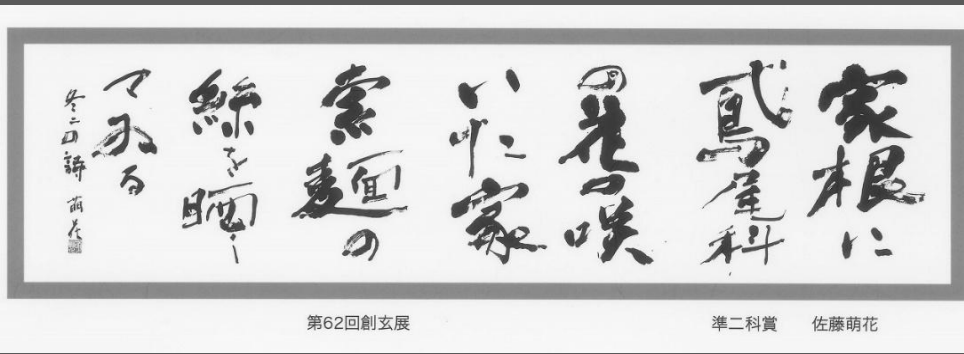 家根に
鳶尾科
の花の咲
いた家
索麺の
絲を晒し
てゐる
冬二の詩 萌花
第62回創玄展 準二科賞 佐藤萌花